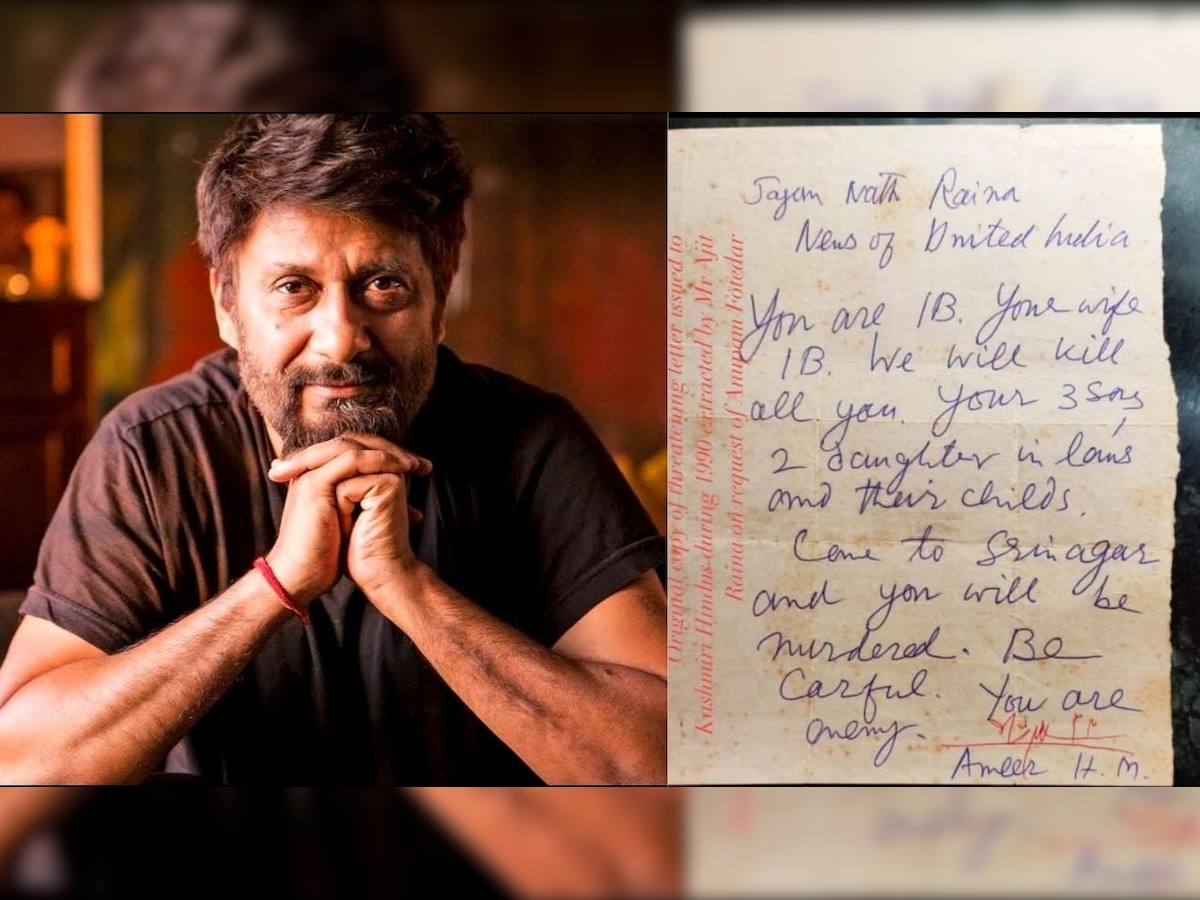 Jagan Nath Raina
News of United India
You are IB. Your wife
IB. We will kill
all you. Your 3 sons,
2 daughter in laws
and their childs.
Come to Srinagar
and you will be
murdered. Be
Carful. You are
enemy.
Ameer H. M.
Original copy of threatening letter issued to
Kashmiri Hindus during 1990 extracted by Mr Ajit
Raina on request of Anupam Fotedar